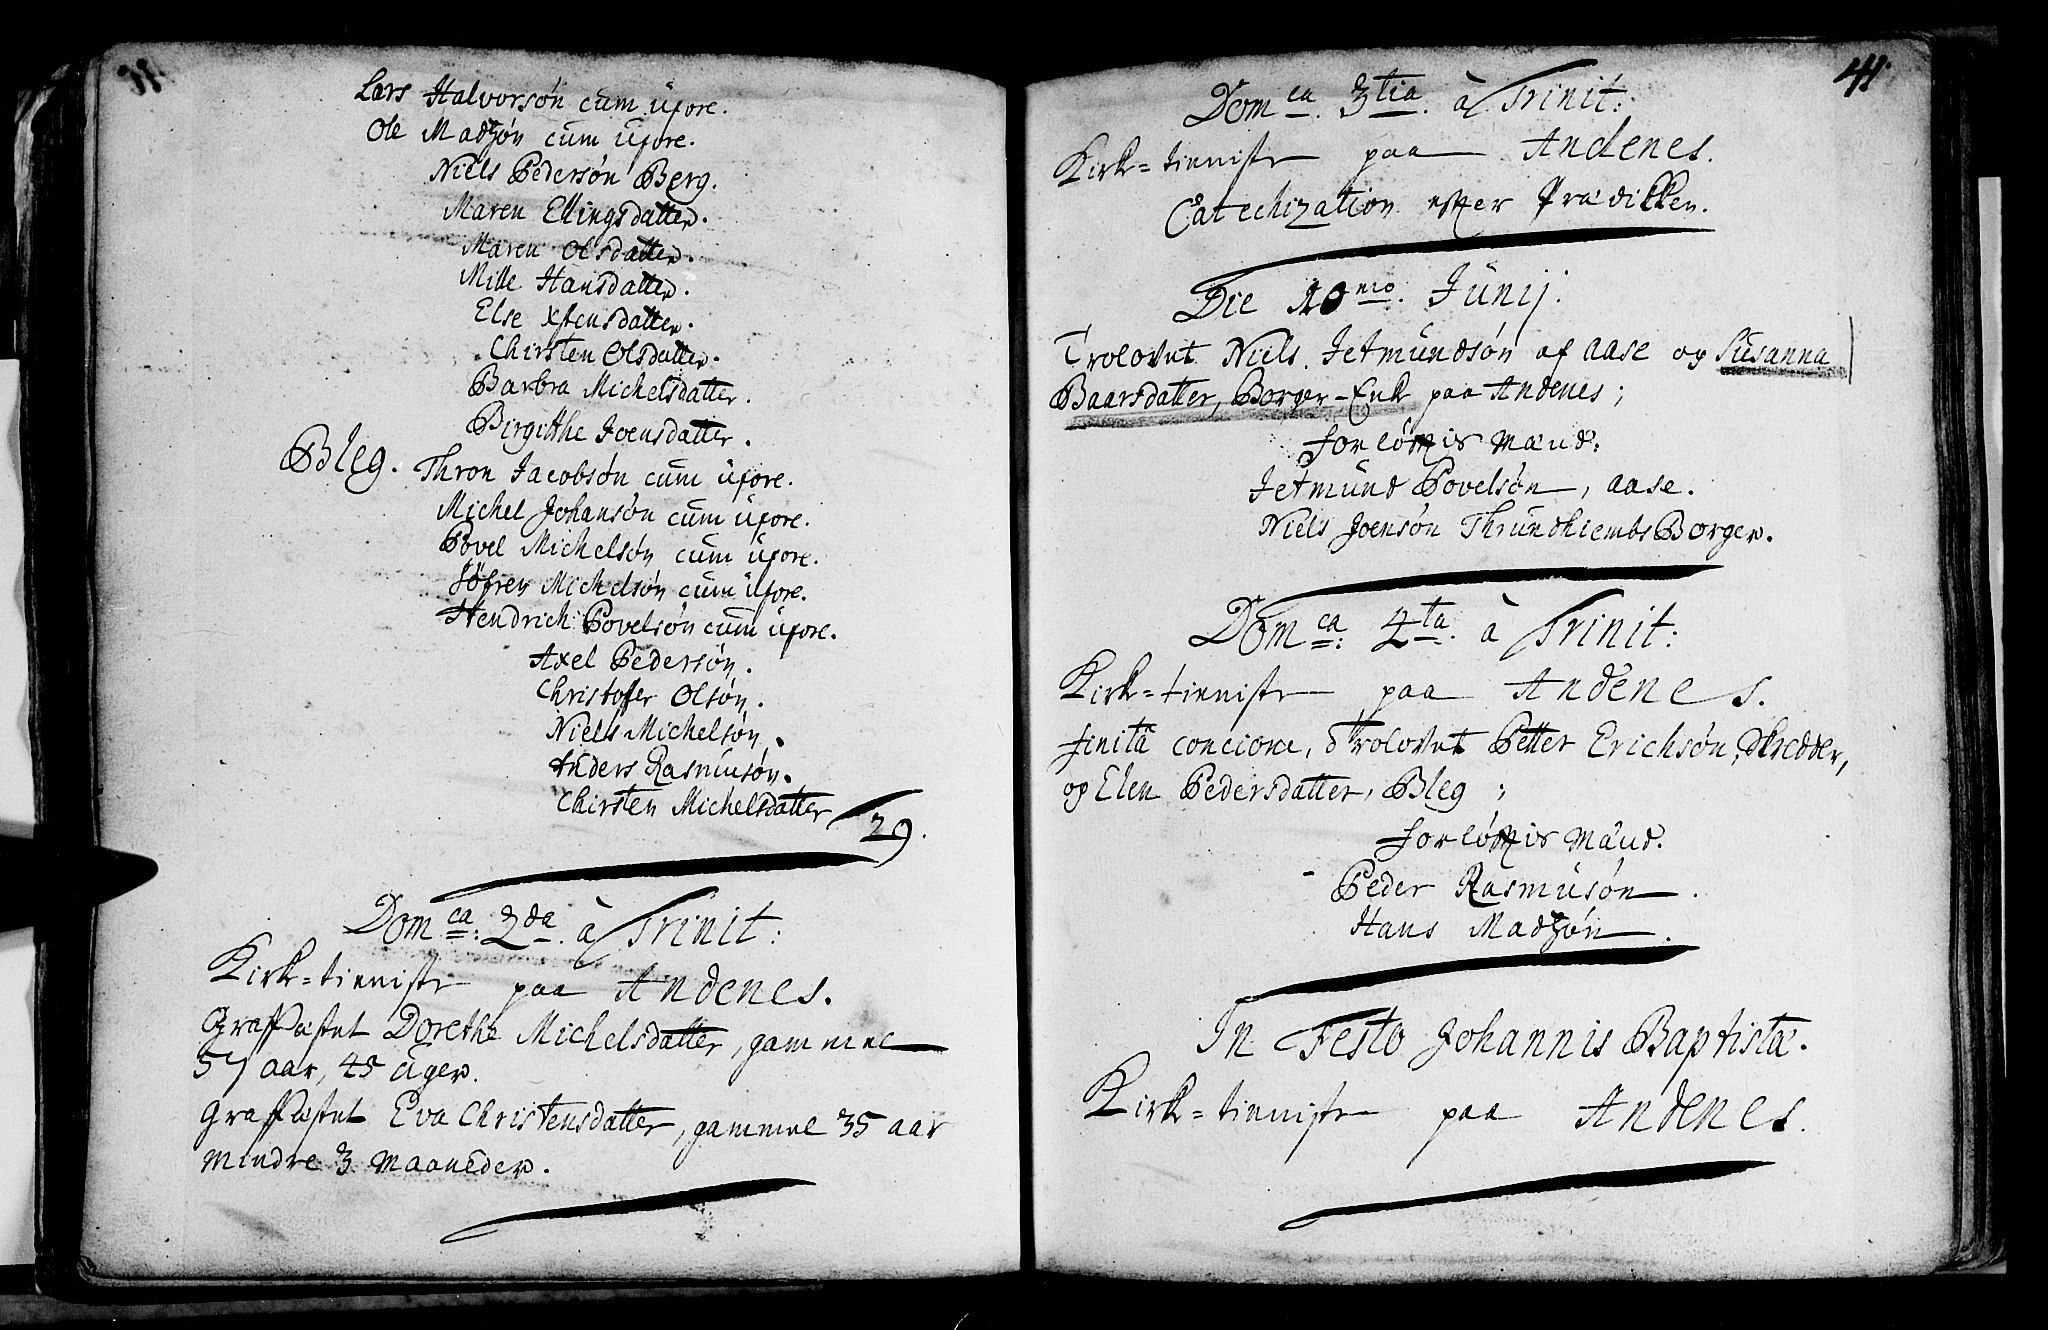 Lars Halvorsøn cum uxore.
Ole Madzøn cum uxore.
Niels Pedersøn Berg.
Maren Ellingsdatter.
Maren Olsdatter.
Mille Hansdatter.
Else Xstensdatter.
Chirsten Olsdatter.
Barbra Michelsdatter.
Birgitthe Joensdatter.
Bleg. Thron Jacobsøn cum uxore.
Michel Johansøn cum uxore.
Povel Michelsøn cum uxore.
Søfren Michelsøn cum uxore.
Hendrich Povelsøn cum uxore.
Axel Pedersøn.
Christoffer Olsøn.
Niels Michelsøn.
Anders Rasmusøn.
Chirsten Michelsdatter 29.
Dom ca: 2da. à Trinit:
Kirk=tienniste paa Andenes.
Graffæstet Dorethe Michelsdatter, gammel
57 aar, 45 uger.
Graffæstet Eva Christensdatter, gammel 35 aar
mindre 3 maaneder.
41.
Dom ca. 3tia. à Trinit:
Kirk=tienniste paa Andenes.
Catechization efter Prædikken.
Die 10mo. Junij.
Trolovet Niels Jetmundsøn af Aase og Susanna
Baarsdatter, Borger-Enke paa Andenes;
forløftis Mænd:
Jetmund Povelsøn, Aase.
Niels Joensøn Thrundhiembs Borger.
Dom ca: 4ta. à Trinit:
Kirk=tienniste paa Andenes.
finitâ concione, trolovet Petter Erichsøn, Skredder,
og Elen Pedersdatter, Bleg;
forløftis Mænd.
Peder Rasmusøn.
Hans Madzøn.
In Festo Johannis Baptistæ.
Kirk=tienniste paa Andenes.